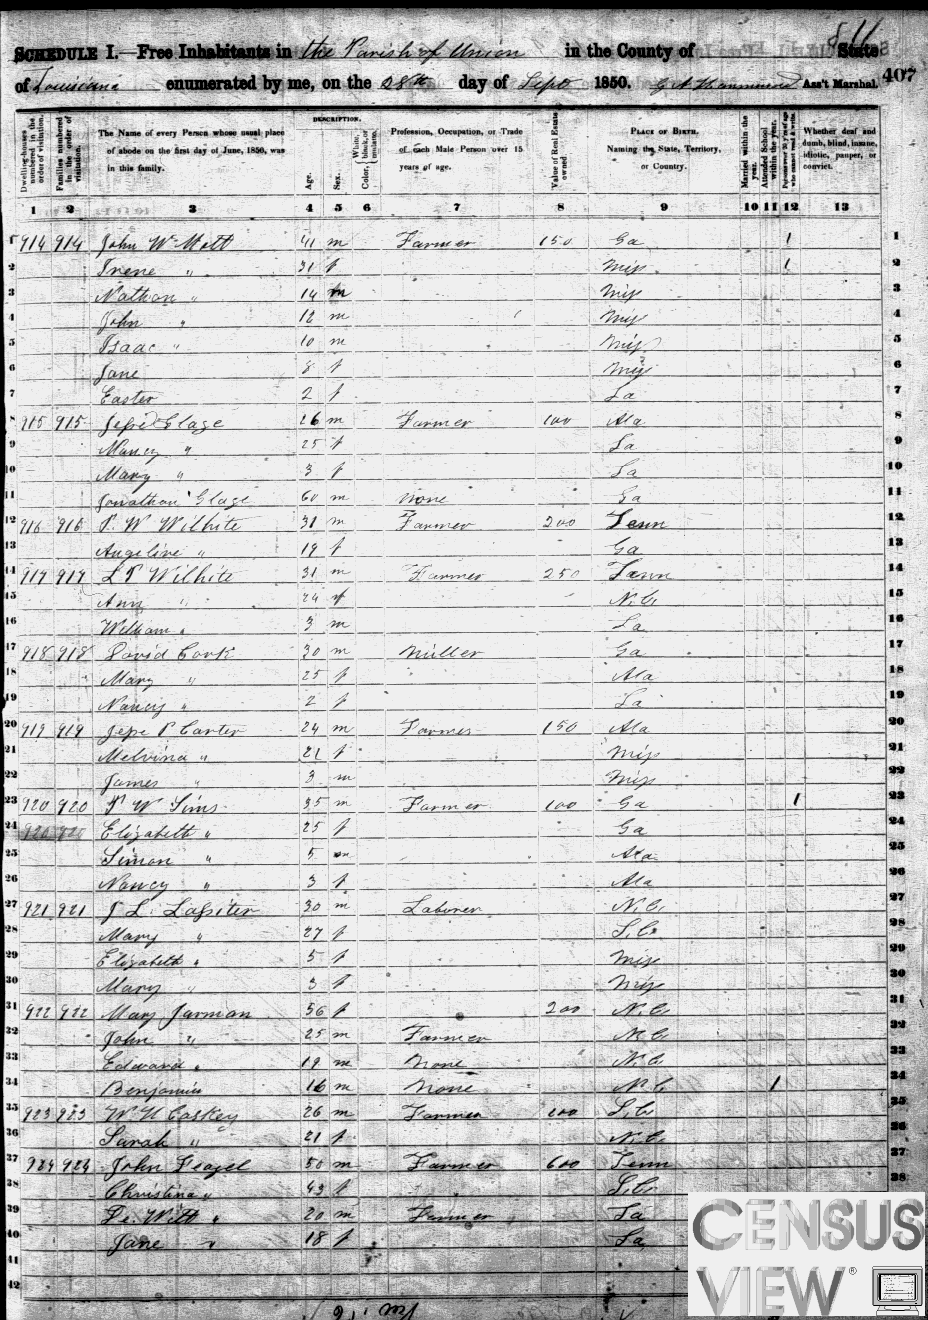 SCHEDULE I.—Free Inhabitants in the Parish of Union in the County of State
of Louisiana enumerated by me, on the 28th day of Sept 1850. Ass't Marshal. 407
DESCRIPTION.
Dwelling-houses numbered in the order of visitation.
Families numbered in the order of visitation.
The Name of every Person whose usual place of abode on the first day of June, 1850, was in this family.
Age.
Sex.
Color, White, black, or mulatto.
Profession, Occupation, or Trade of each Male Person over 15 years of age.
Value of Real Estate owned.
PLACE OF BIRTH. Naming the State, Territory, or Country.
Married within the year.
Attended School within the year.
Persons over 20 y'rs of age who cannot read & write.
Whether deaf and dumb, blind, insane, idiotic, pauper, or convict.
1 2 3 4 5 6 7 8 9 10 11 12 13
1 914 914 John W Mott 41 m Farmer 150 Ga 1 1
2 Irene " 31 f Miss 1 2
3 Nathan " 14 m Miss 3
4 John " 12 m Miss 4
5 Isaac " 10 m Miss 5
6 Jane 8 f Miss 6
7 Easter 2 f La 7
8 915 915 Jesse Glage 26 m Farmer 100 Ala 8
9 Nancy " 25 f La 9
10 Mary " 3 f La 10
11 Jonathan Glage 60 m None Ga 11
12 916 916 P. W Wilhite 31 m Farmer 200 Tenn 12
13 Angeline " 19 f Ga 13
14 917 917 L P Wilhite 31 m Farmer 250 Tenn 14
15 Ann " 24 f N.C. 15
16 William " 3 m La 16
17 918 918 David Cook 30 m Miller Ga 17
18 Mary " 25 f Ala 18
19 Nancy " 2 f La 19
20 919 919 Jesse P Carter 24 m Farmer 150 Ala 20
21 Melvina " 21 f Miss 21
22 James " 3 m Miss 22
23 920 920 W Sims 35 m Farmer 100 Ga 1 23
24 920 920 Elizabeth " 25 f Ga 24
25 Simon " 5 m Ala 25
26 Nancy " 3 f Ala 26
27 921 921 J L. Lassiter 30 m Laborer N.C. 27
28 Mary " 27 f S.C. 28
29 Elizabeth " 5 f Miss 29
30 Mary " 3 f Miss 30
31 922 922 Mary Jarman 56 f 200 N.C. 31
32 John " 25 m Farmer N.C. 32
33 Edward " 19 m None N.C. 33
34 Benjamin 16 m None N.C. 1 34
35 923 923 W H Caskey 26 m Farmer 200 S.C. 35
36 Sarah " 21 f N.C. 36
37 924 924 John Feazel 50 m Farmer 600 Tenn 37
38 Christina " 43 f S.C. 38
39 De. Witt " 20 m Farmer La
40 Jane " 18 f La
41
42
CENSUS
VIEW®